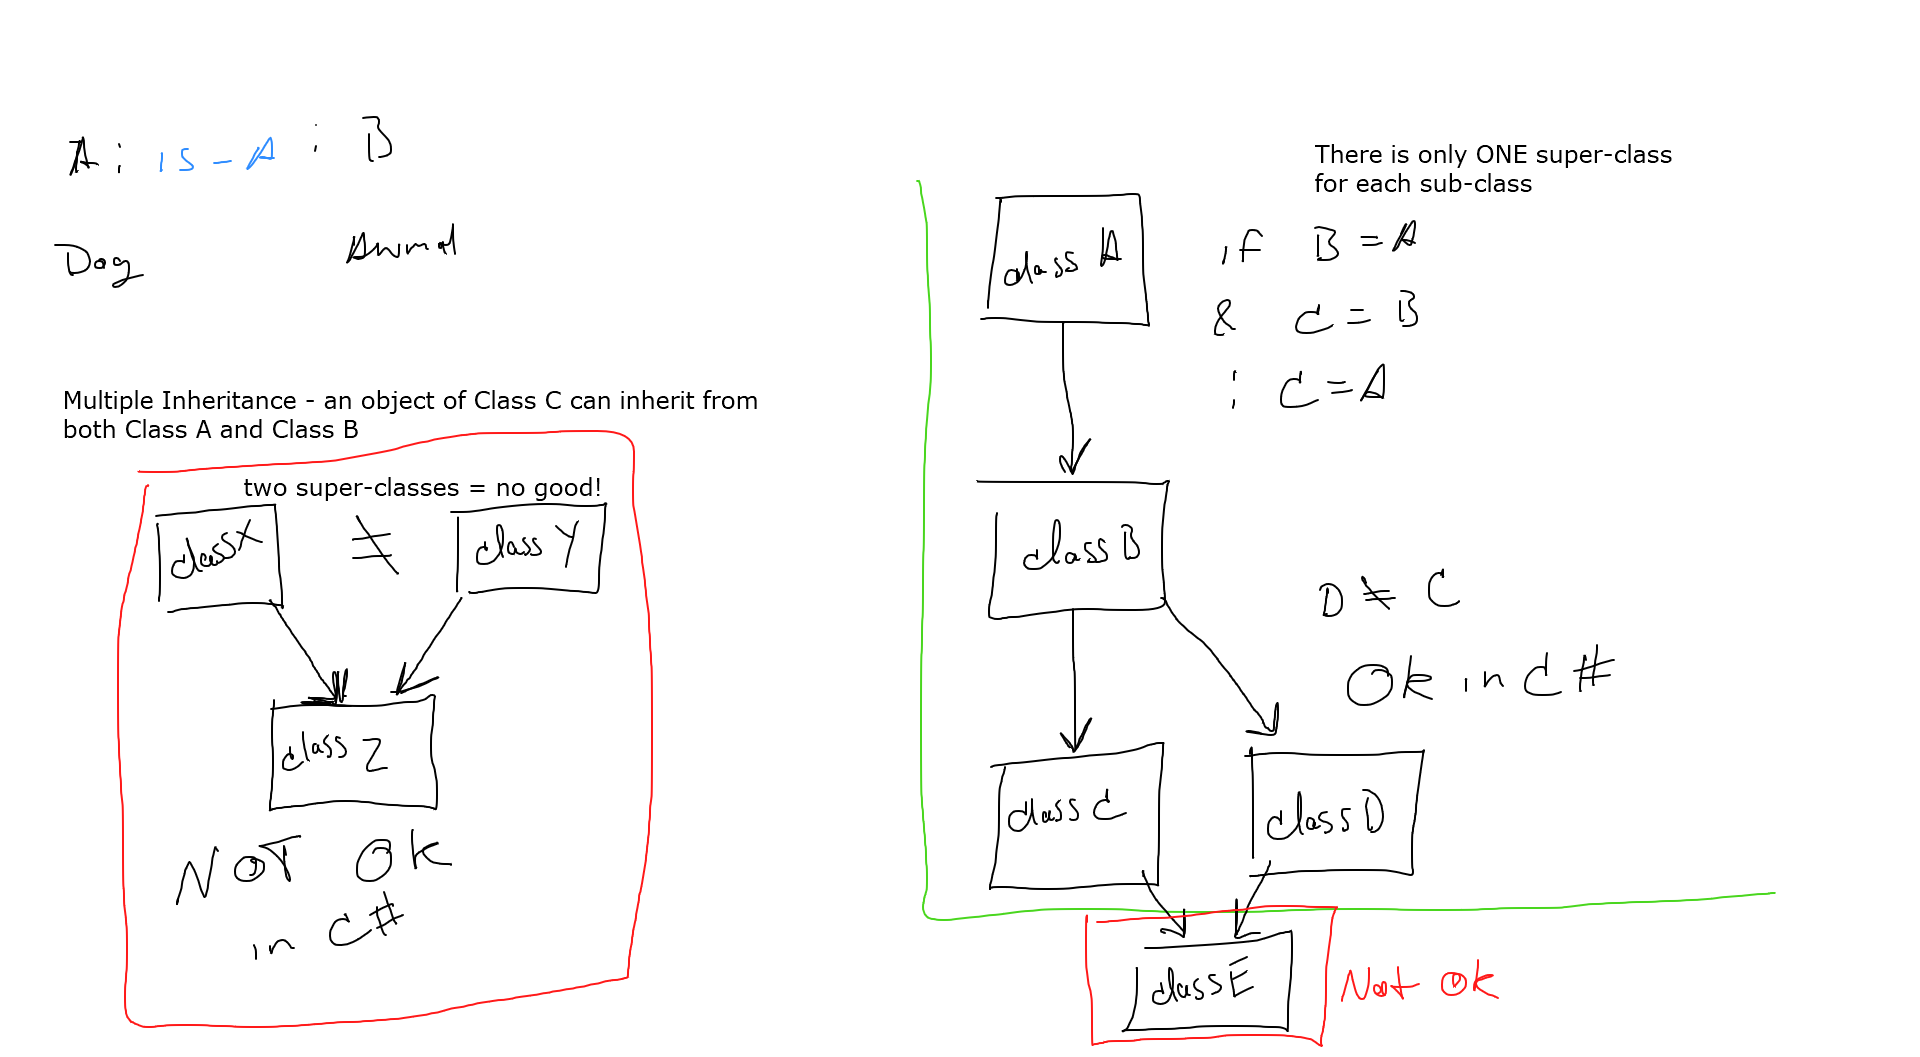 A : is-A : B
Dog Animal
Multiple Inheritance - an object of Class C can inherit from
both Class A and Class B
two super-classes = no good!
class X ≠ class Y
class Z
NOT OK
in C#
There is only ONE super-class
for each sub-class
class A
if B = A
& C = B
: C = A
class B
D ≠ C
Ok in C#
class C
class D
class E
Not ok